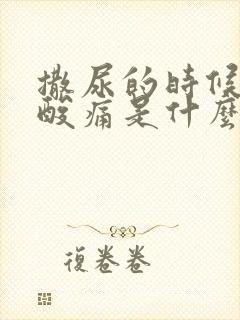 撒尿的時候
酸痛是什麼
復卷卷